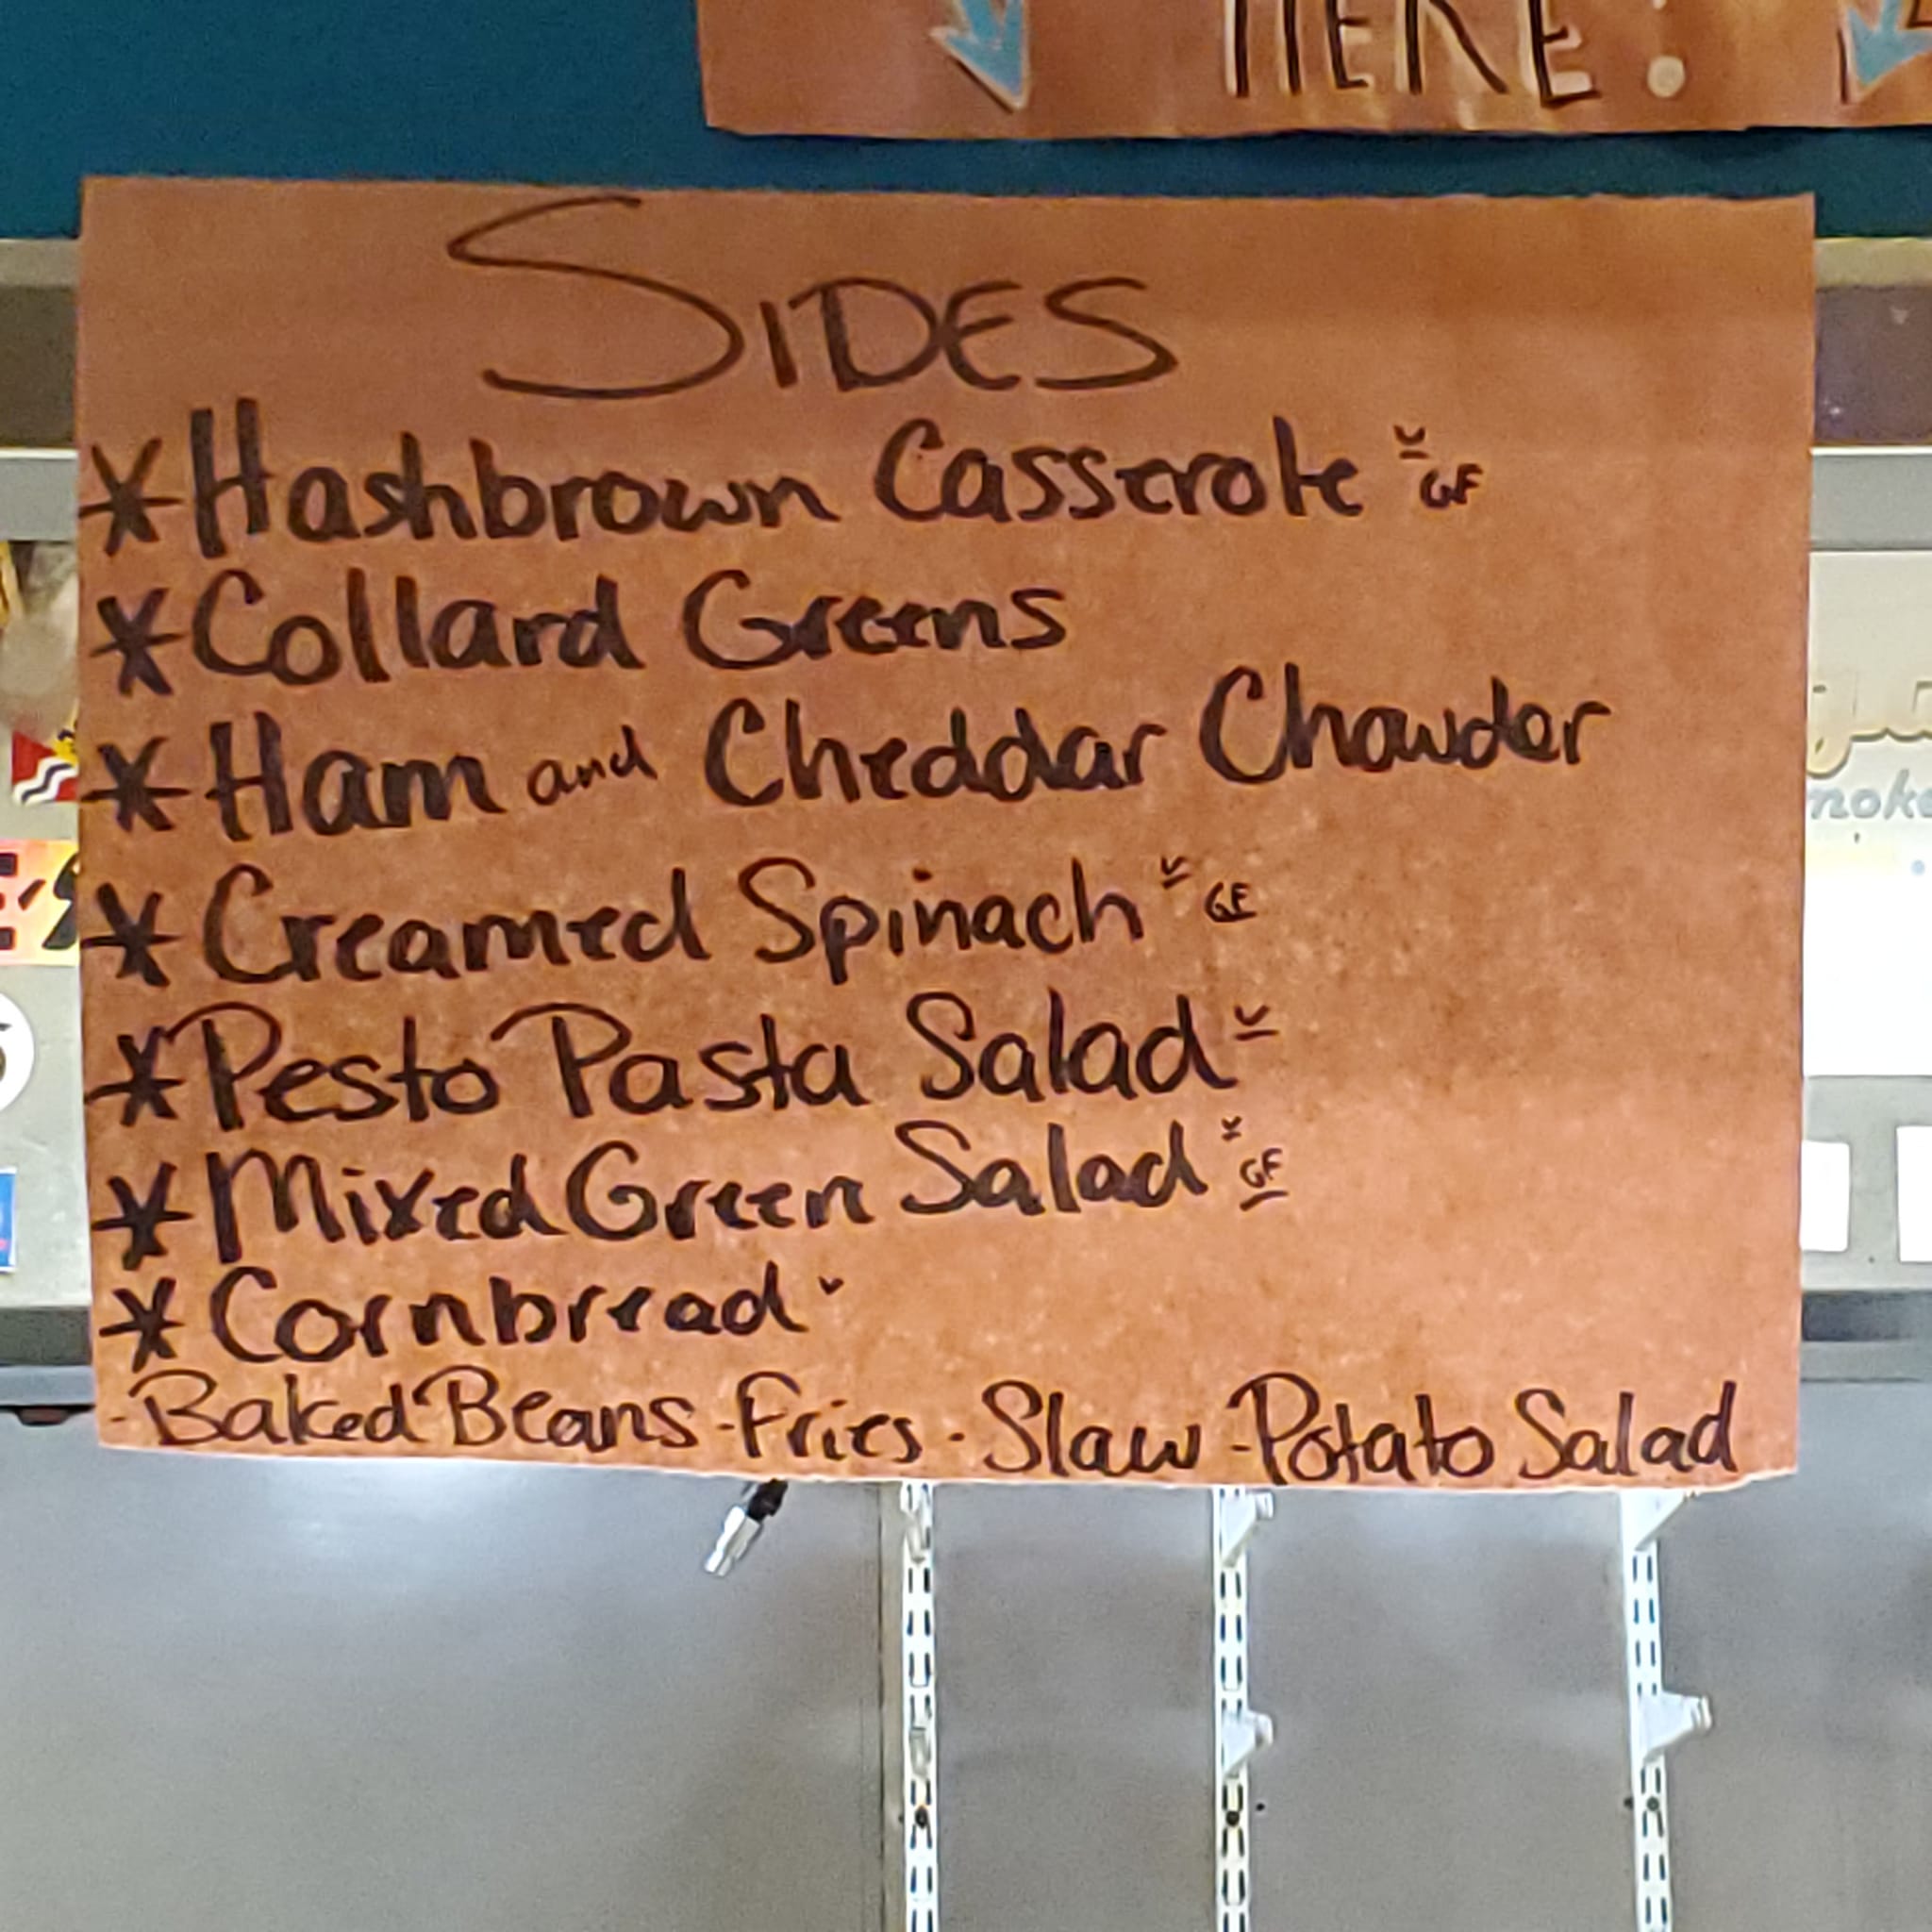 HERE!
SIDES
* Hashbrown Casserole V GF
* Collard Greens
* Ham and Cheddar Chowder
* Creamed Spinach V GF
* Pesto Pasta Salad V
* Mixed Green Salad V GF
* Cornbread V
-Baked Beans -Fries -Slaw -Potato Salad